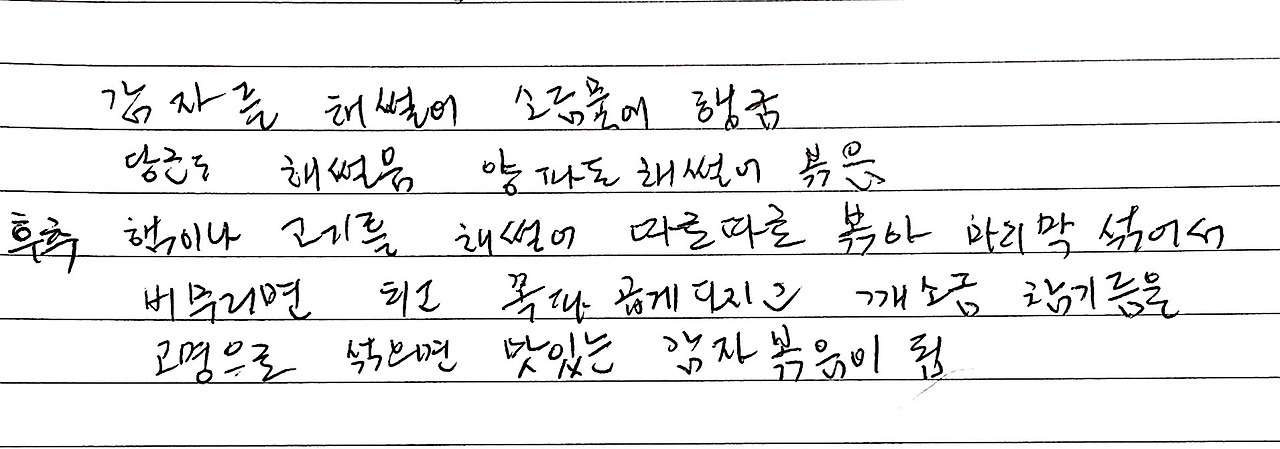 감자를 채썰어 소금물에 헹굼
당근도 채썰음 양파도 채썰어 볶음
후추 햄이나 고기를 채썰어 따로따로 볶아 마지막 섞어서
버무리면 되고 곱게 다지고 깨소금 참기름을
고명으로 섞으면 맛있는 감자볶음이 됨